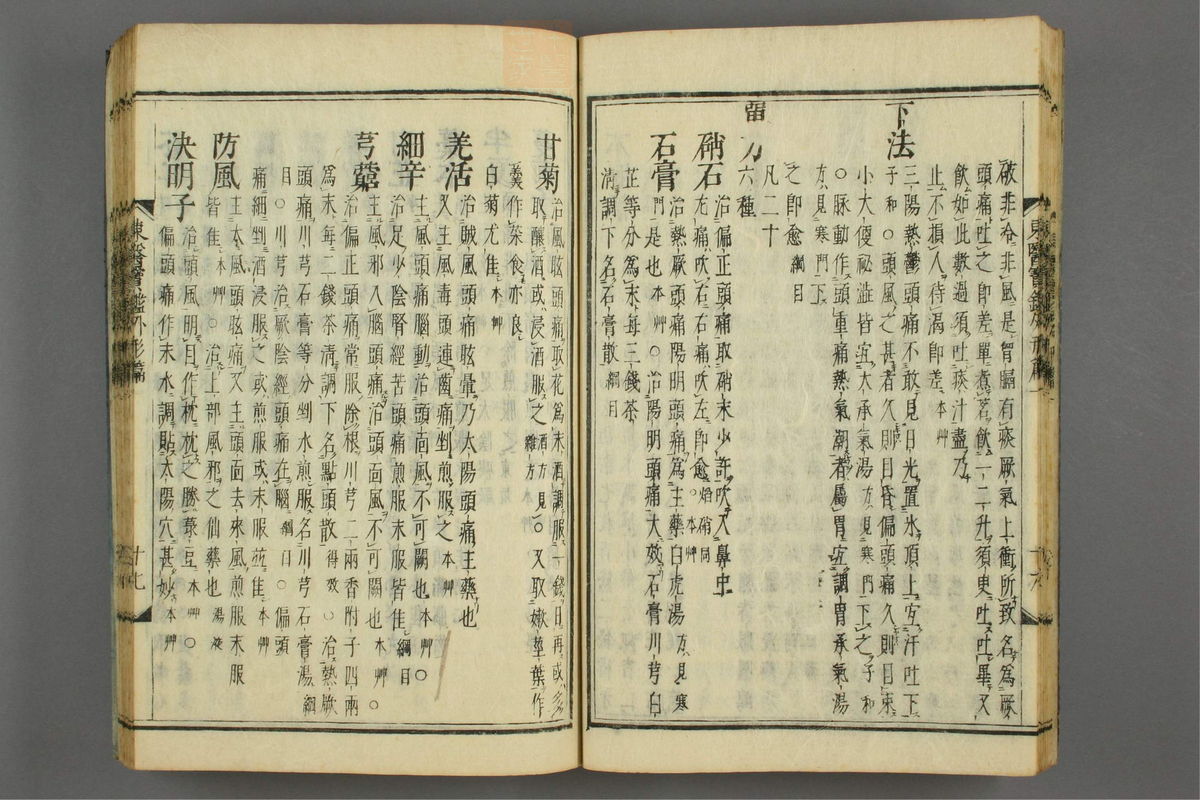 故非冷非風是胷膈有痰厥氣上衝所致名為厥
頭痛吐之即差單煮茗飲一二升須臾吐吐畢又
飲如此數過須吐痰汁盡乃
止不損人待渴即差 本艸
下法
三陽熱鬱頭痛不敢見日光置氷頂上宜汗吐下
子和○頭風之甚者久則目昏偏頭痛久則目束
小大便秘澁皆宜大承氣湯方見寒門下之子和
○脉動作頭重痛熱氣潮者屬胃宜調胃承氣湯
方見寒門下
之即愈 綱目
單方
凡二十
六種
硝石
治偏正頭痛取硝末少許吹入鼻中
左痛吹右右痛吹左即愈焰硝同○本艸
石膏
治熱厥頭痛陽明頭痛為主藥白虎湯方見寒
門是也本艸○治陽明頭痛大效石膏川芎白
芷等分為末每三錢茶
淸調下名石膏散 綱目
東醫寶鑑外形篇
甘菊
治風眩頭痛取花為末酒調服一錢日再或多
取釀酒或浸酒服之酒方見雜方○又取嫩莖葉作
羹作菜食亦良
白菊尤佳 本艸
羌活
治賊風頭痛眩暈乃太陽頭痛主藥也
又主風毒頭連齒痛剉煎服之 本艸
細辛
主風頭痛腦動治頭面風不可闕也本艸○
治足少陰腎經苦頭痛煎服末服皆佳綱目
芎藭
主風邪入腦頭痛治頭面風不可闕也本艸○
治偏正頭痛常服除根川芎二兩香附子四兩
為末每二錢茶淸調下名點頭散得效○治熱厥
頭痛川芎石膏等分剉水煎服名川芎石膏湯綱
目○川芎治厥陰經頭痛在腦綱目○偏頭
痛細剉酒浸服之或煎服或末服並佳本艸
防風
主大風頭眩痛又主頭面去來風煎服末服
皆佳本艸○治上部風邪之仙藥也湯液
決明子
治頭風明目作枕枕之勝菉豆本艸○
偏頭痛作末水調貼太陽穴甚妙本艸
東醫寶鑑外形篇
十七